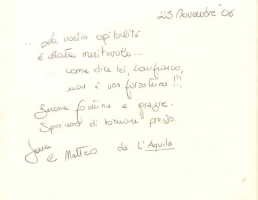 25 Novembre '06
.. La vostra ospitalità
è stata meritevole....
come dice lei, Lanfranco,
non è una forzatura !!!
Buona fortuna e grazie.
Speriamo di tornare presto.
e Matteo da L'Aquila